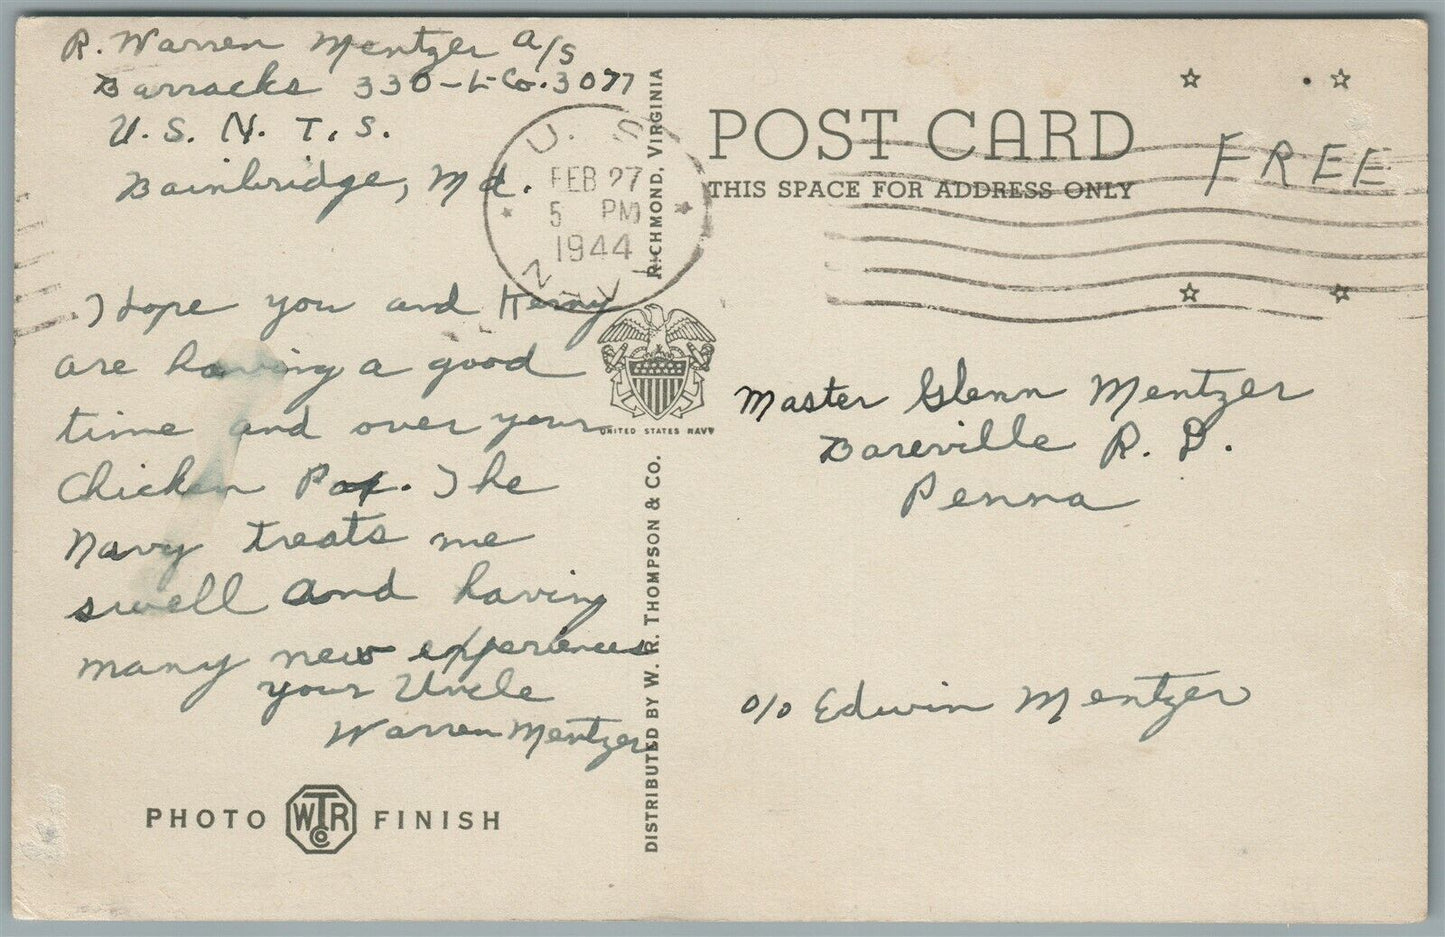 R. Warren Mentzer A/S
Barracks 330-L-Co. 3077
U. S. N. T. S.
Bainbridge, Md.
I hope you and
are having a good
time and over your
Chicken Pox. The
Navy treats me
swell and having
many new experiences
your Uncle
Warren Mentzer
PHOTO WTR Co FINISH
U. S.
FEB 27
5 PM
1944
NAVY
UNITED STATES NAVY
DISTRIBUTED BY W. R. THOMPSON & CO. RICHMOND, VIRGINIA
POST CARD
THIS SPACE FOR ADDRESS ONLY
FREE
Master Glenn Mentzer
Bareville R. D.
Penna
c/o Edwin Mentzer